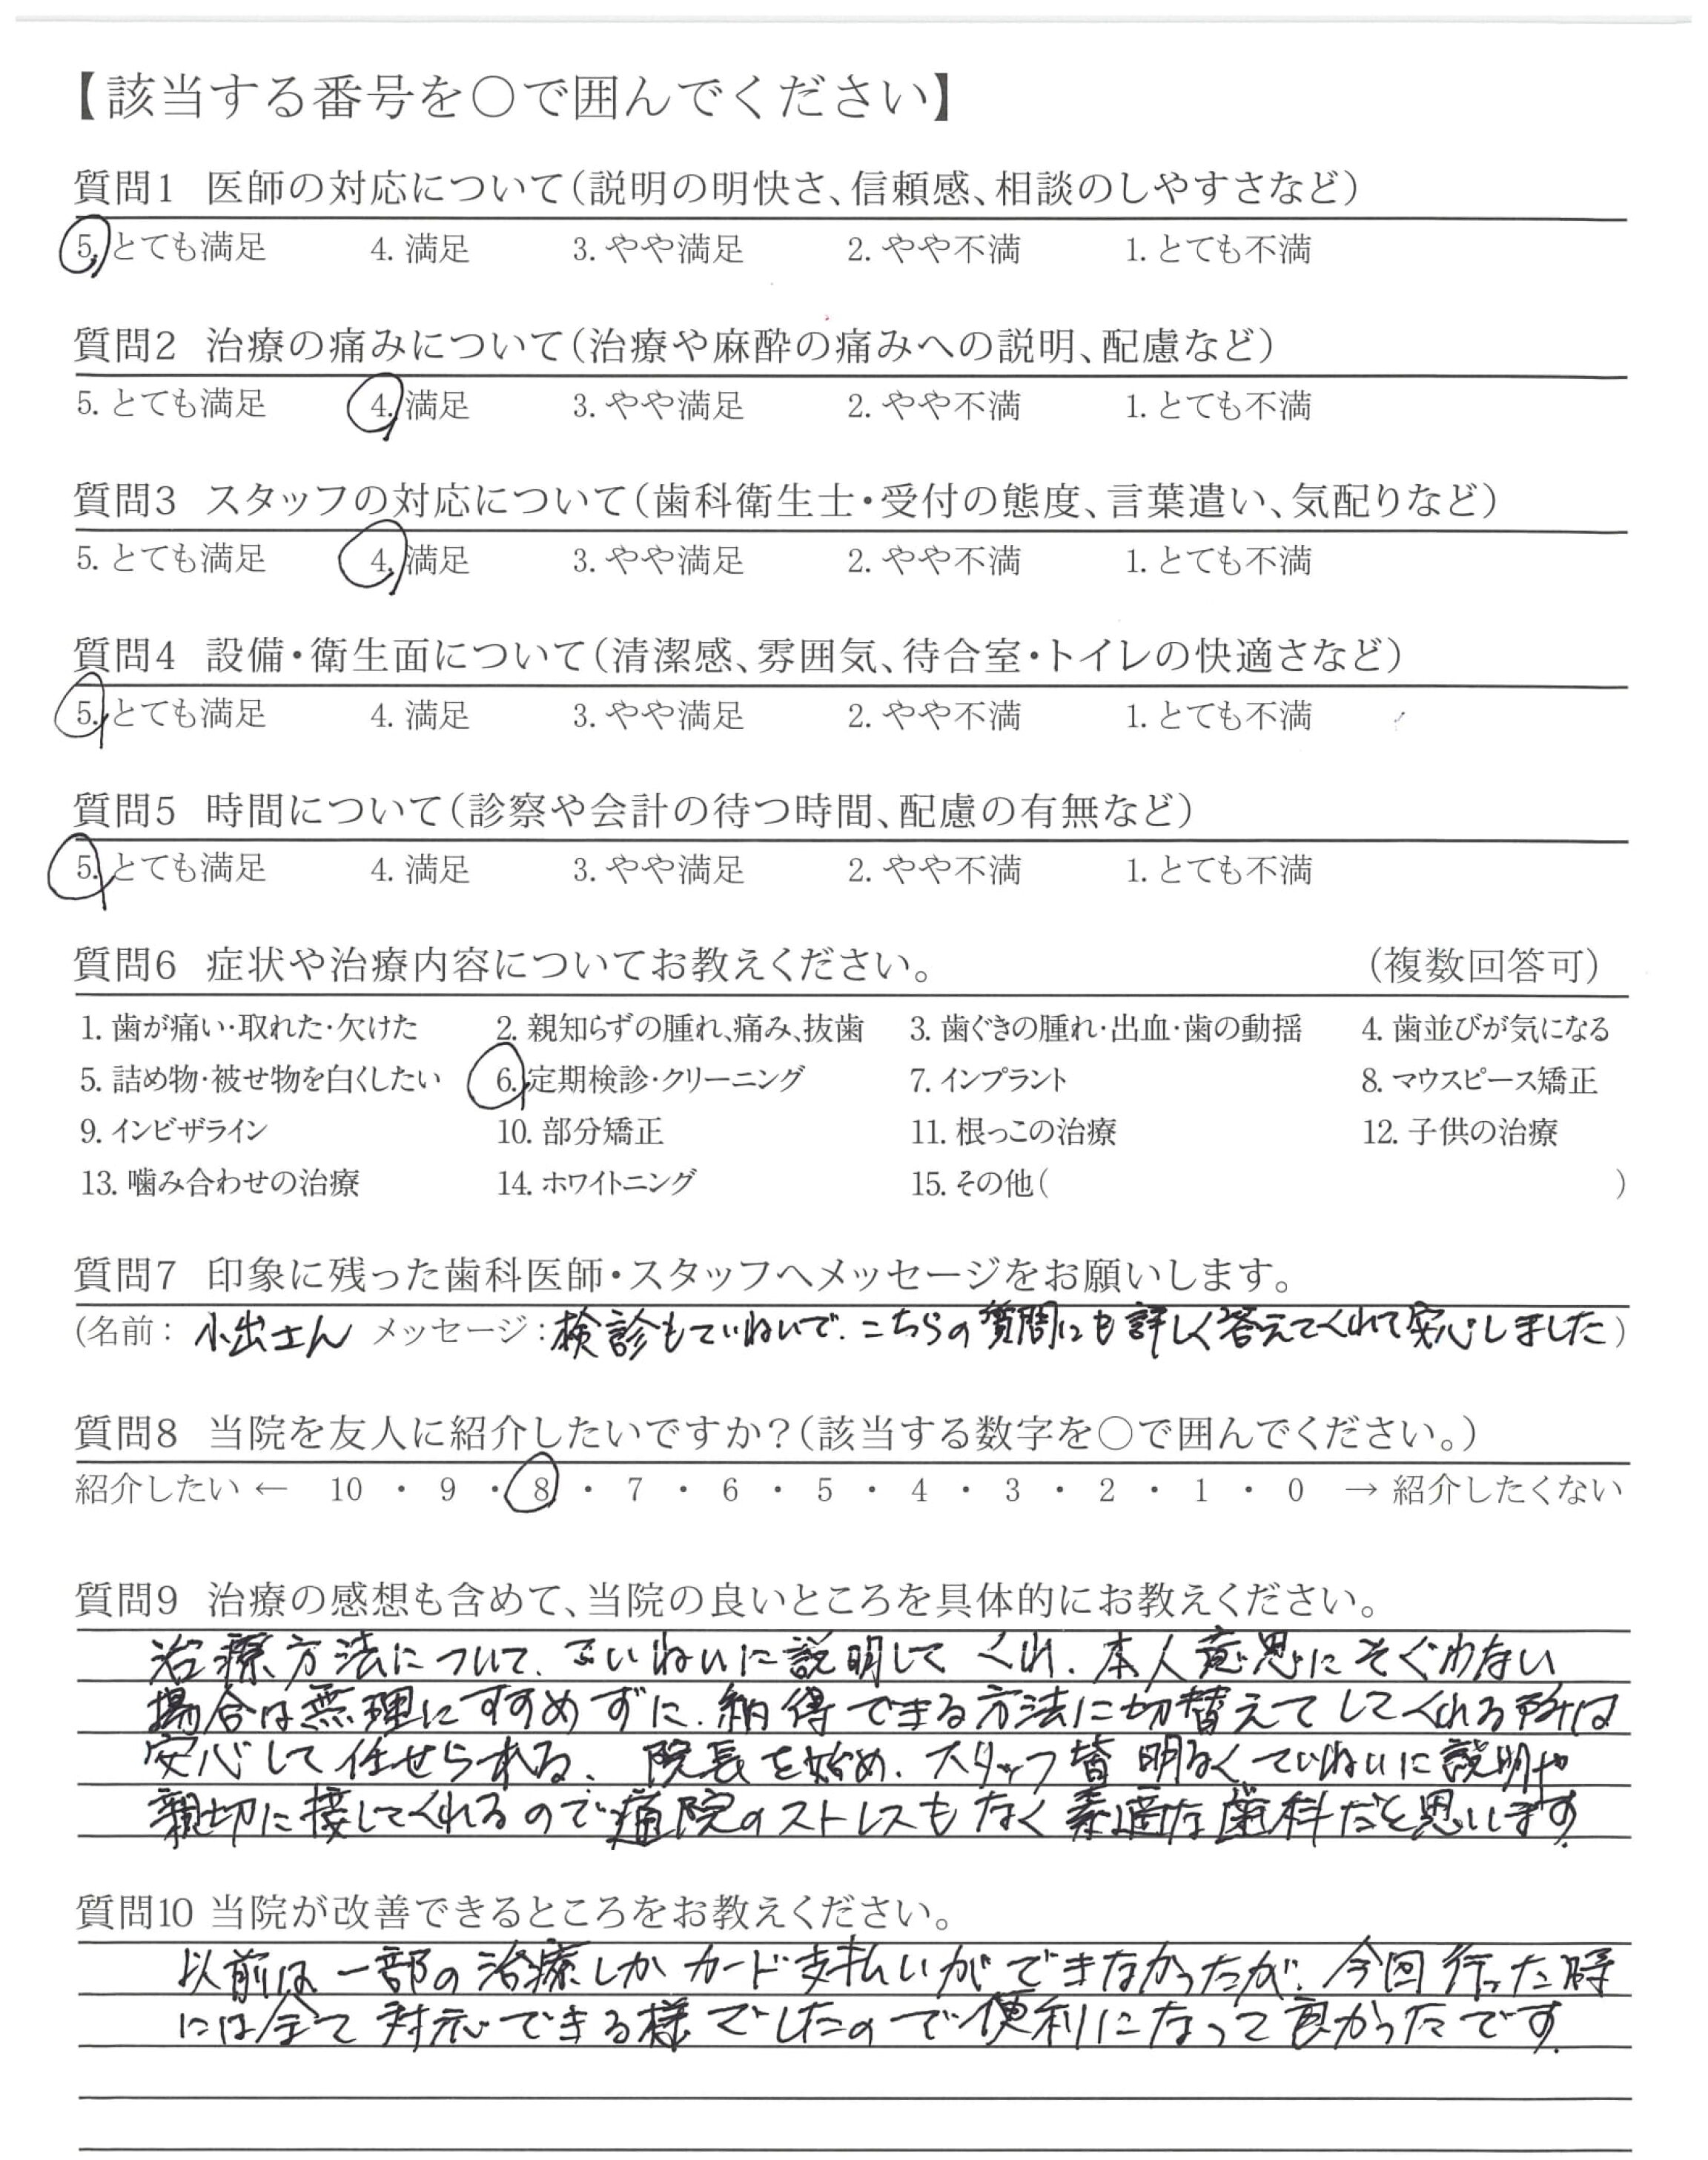 【該当する番号を○で囲んでください】
質問1 医師の対応について(説明の明快さ、信頼感、相談のしやすさなど)
5. とても満足 4. 満足 3. やや満足 2. やや不満 1. とても不満
質問2 治療の痛みについて(治療や麻酔の痛みへの説明、配慮など)
5. とても満足 4. 満足 3. やや満足 2. やや不満 1. とても不満
質問3 スタッフの対応について(歯科衛生士・受付の態度、言葉遣い、気配りなど)
5. とても満足 4. 満足 3. やや満足 2. やや不満 1. とても不満
質問4 設備・衛生面について(清潔感、雰囲気、待合室・トイレの快適さなど)
5. とても満足 4. 満足 3. やや満足 2. やや不満 1. とても不満
質問5 時間について(診察や会計の待つ時間、配慮の有無など)
5. とても満足 4. 満足 3. やや満足 2. やや不満 1. とても不満
質問6 症状や治療内容についてお教えください。 (複数回答可)
1. 歯が痛い・取れた・欠けた 2. 親知らずの腫れ、痛み、抜歯 3. 歯ぐきの腫れ・出血・歯の動揺 4. 歯並びが気になる
5. 詰め物・被せ物を白くしたい 6. 定期検診・クリーニング 7. インプラント 8. マウスピース矯正
9. インビザライン 10. 部分矯正 11. 根っこの治療 12. 子供の治療
13. 噛み合わせの治療 14. ホワイトニング 15. その他( )
質問7 印象に残った歯科医師・スタッフへメッセージをお願いします。
(名前: 小出さん メッセージ: 検診もていねいで、こちらの質問にも詳しく答えてくれて安心しました)
質問8 当院を友人に紹介したいですか?(該当する数字を○で囲んでください。)
紹介したい ← 10 ・ 9 ・ 8 ・ 7 ・ 6 ・ 5 ・ 4 ・ 3 ・ 2 ・ 1 ・ 0 → 紹介したくない
質問9 治療の感想も含めて、当院の良いところを具体的にお教えください。
治療方法について、ていねいに説明してくれ、本人意思にそぐわない
場合は無理にすすめずに、納得できる方法に切替えてしてくれる所は
安心して任せられる、院長を始め、スタッフ皆明るくていねいに説明や
親切に接してくれるので通院のストレスもなく素適な歯科だと思います。
質問10 当院が改善できるところをお教えください。
以前は一部の治療しかカード支払いができなかったが、今回行った時
には全て対応できる様でしたので便利になって良かったです。